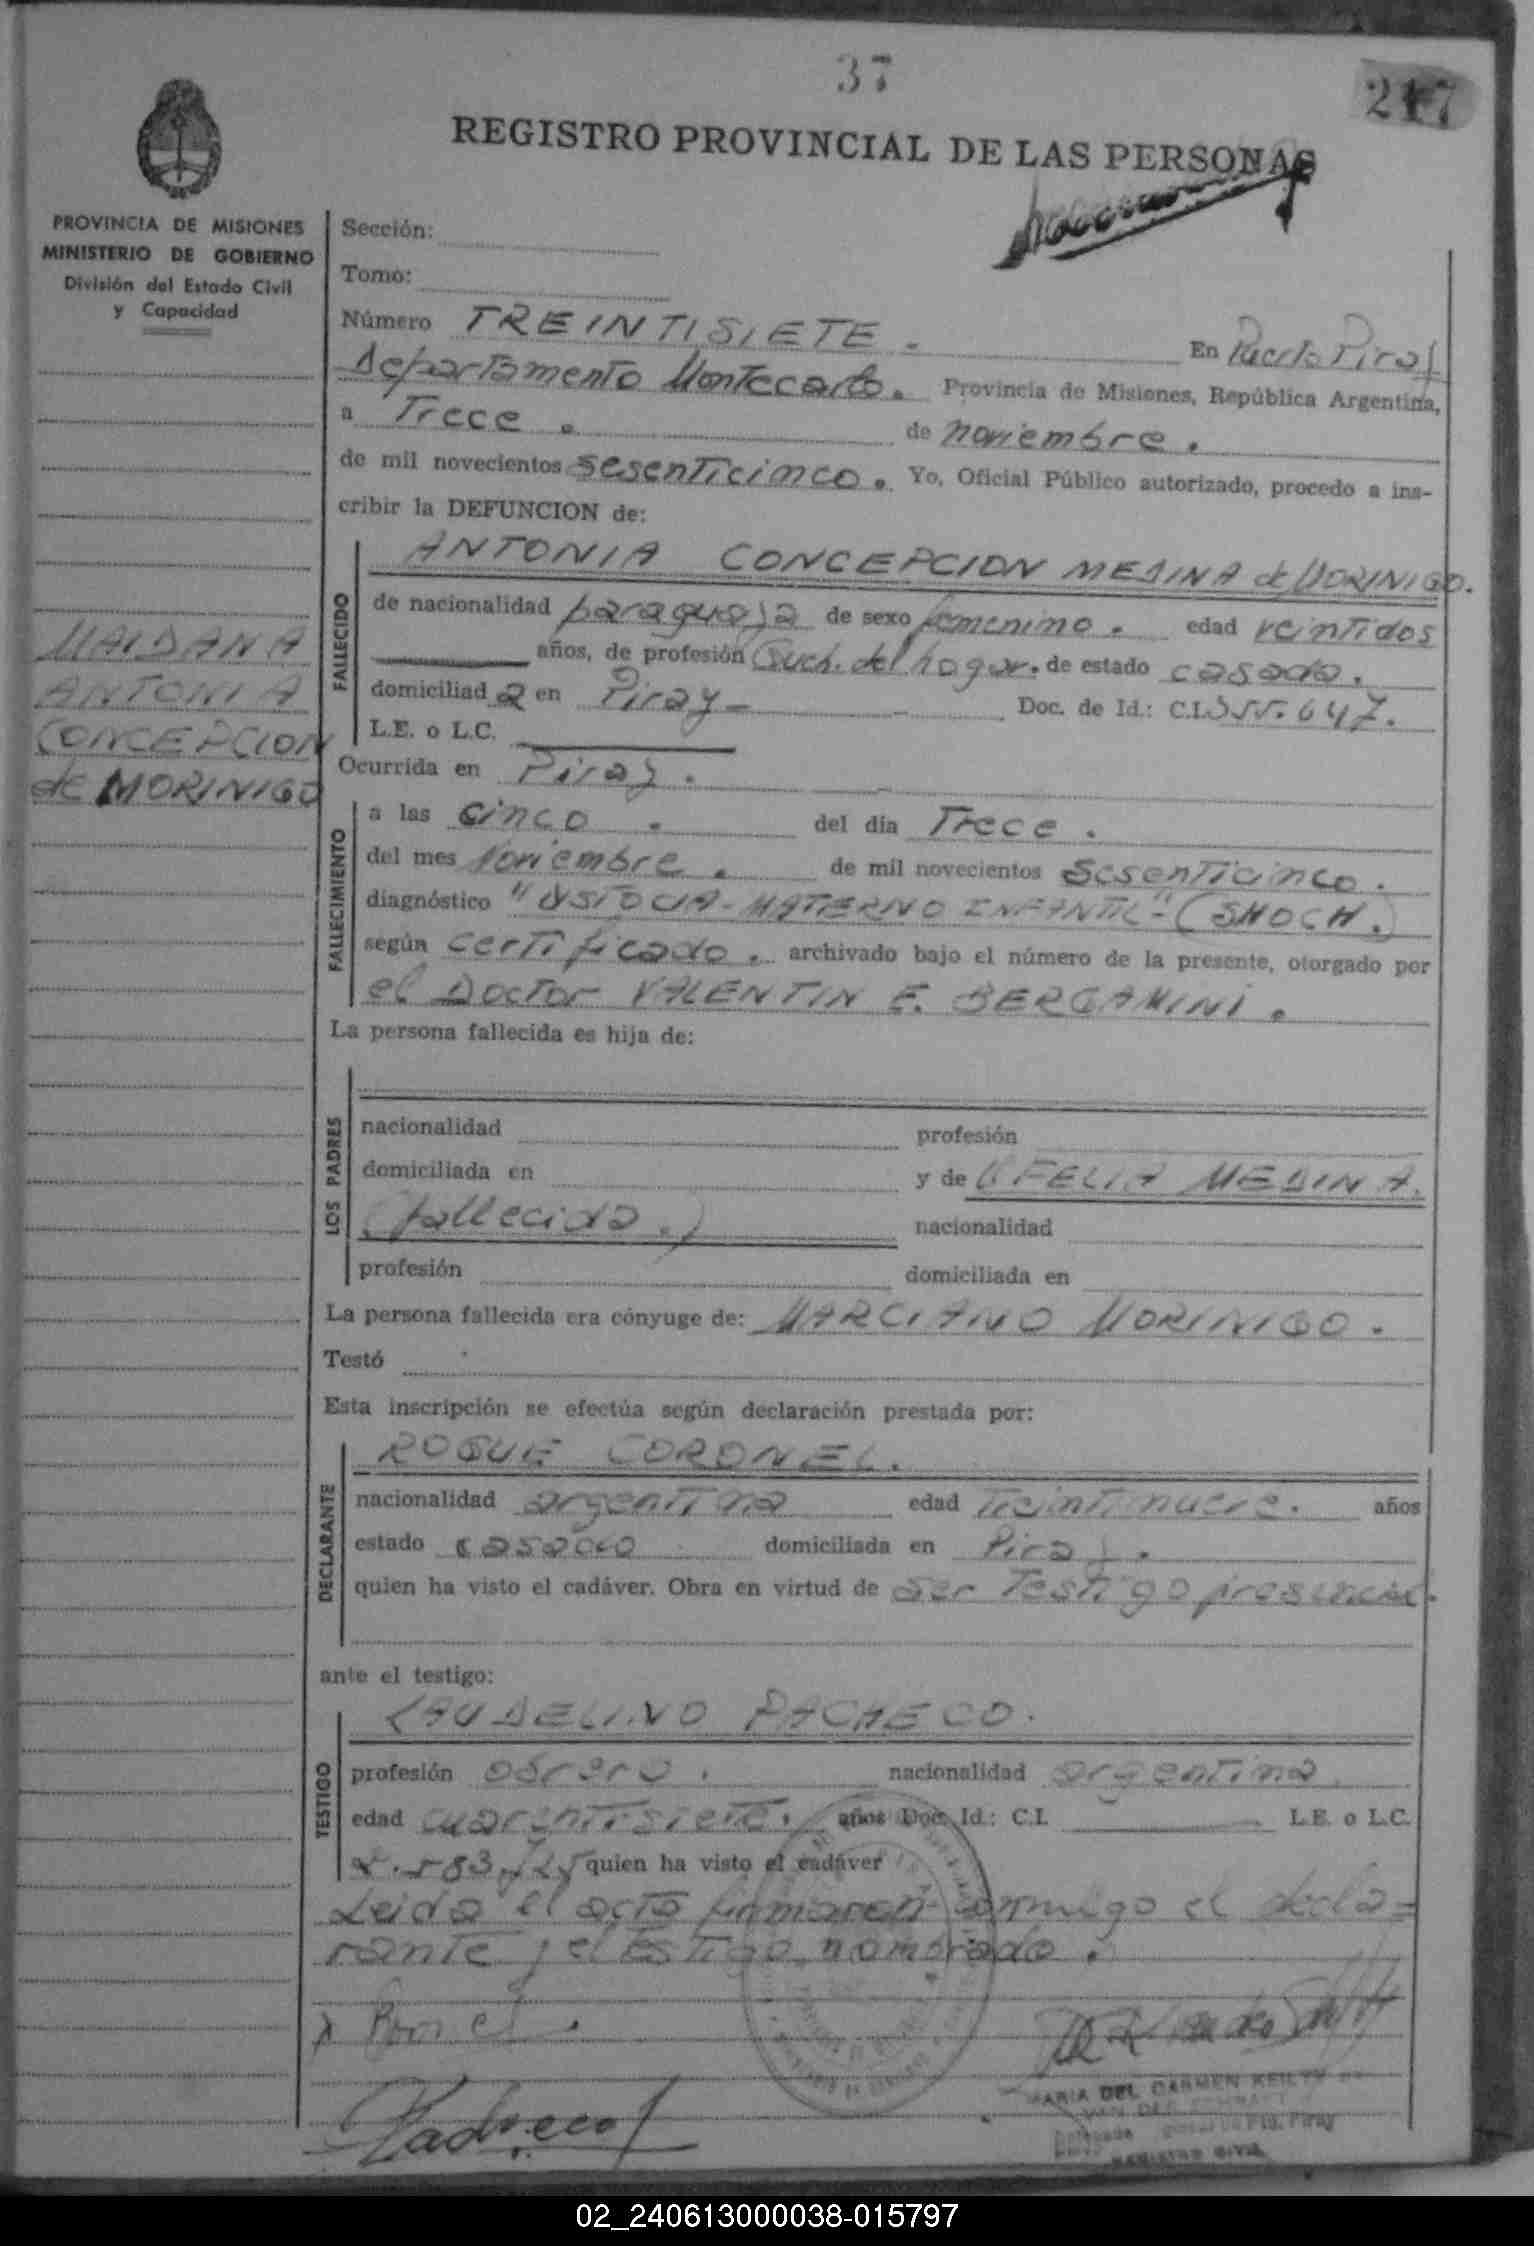 37
217
REGISTRO PROVINCIAL DE LAS PERSONAS
PROVINCIA DE MISIONES
MINISTERIO DE GOBIERNO
División del Estado Civil
y Capacidad
Sección:
Tomo:
Número TREINTISIETE. En Puerto Piray
departamento Montecarlo. Provincia de Misiones, República Argentina,
a Trece. de noviembre.
de mil novecientos sesenticinco. Yo, Oficial Público autorizado, procedo a ins-
cribir la DEFUNCION de:
FALLECIDO
ANTONIA CONCEPCION MEDINA de MORINIGO.
de nacionalidad paraguaya de sexo femenino. edad veintidos
años, de profesión Queh. del hogar. de estado casada.
domiciliada en Piray- Doc. de Id.: C.I.
L.E. o L.C.
MAIDANA
ANTONIA
CONCEPCION
de MORINIGO
Ocurrida en Piray.
FALLECIMIENTO
a las cinco. del día Trece.
del mes Noviembre. de mil novecientos sesenticinco.
diagnóstico "DISTOCIA-MATERNO INFANTIL"-(SHOCH.)
según certificado. archivado bajo el número de la presente, otorgado por
el Doctor VALENTIN E. BERGAMINI.
La persona fallecida es hija de:
LOS PADRES
nacionalidad profesión
domiciliada en y de OFELIA MEDINA.
(fallecida.) nacionalidad
profesión domiciliada en
La persona fallecida era cónyuge de: MARCIANO MORINIGO.
Testó
Esta inscripción se efectúa según declaración prestada por:
DECLARANTE
ROQUE CORONEL.
nacionalidad argentina edad treintinueve. años
estado casado domiciliada en Piray.
quien ha visto el cadáver. Obra en virtud de ser Testigo presencial.
ante el testigo:
TESTIGO
LAUDELINO PACHECO.
profesión obrero. nacionalidad argentina
edad cuarentisiete. años Doc. Id.: C.I. L.E. o L.C.
quien ha visto el cadáver
Leida el acta firmaron conmigo el decla=
rante y el testigo nombrado.
Pacheco
MARIA DEL CARMEN KEILTY DE
Delegada Pto. Piray
REGISTRO CIVIL
02_240613000038-015797